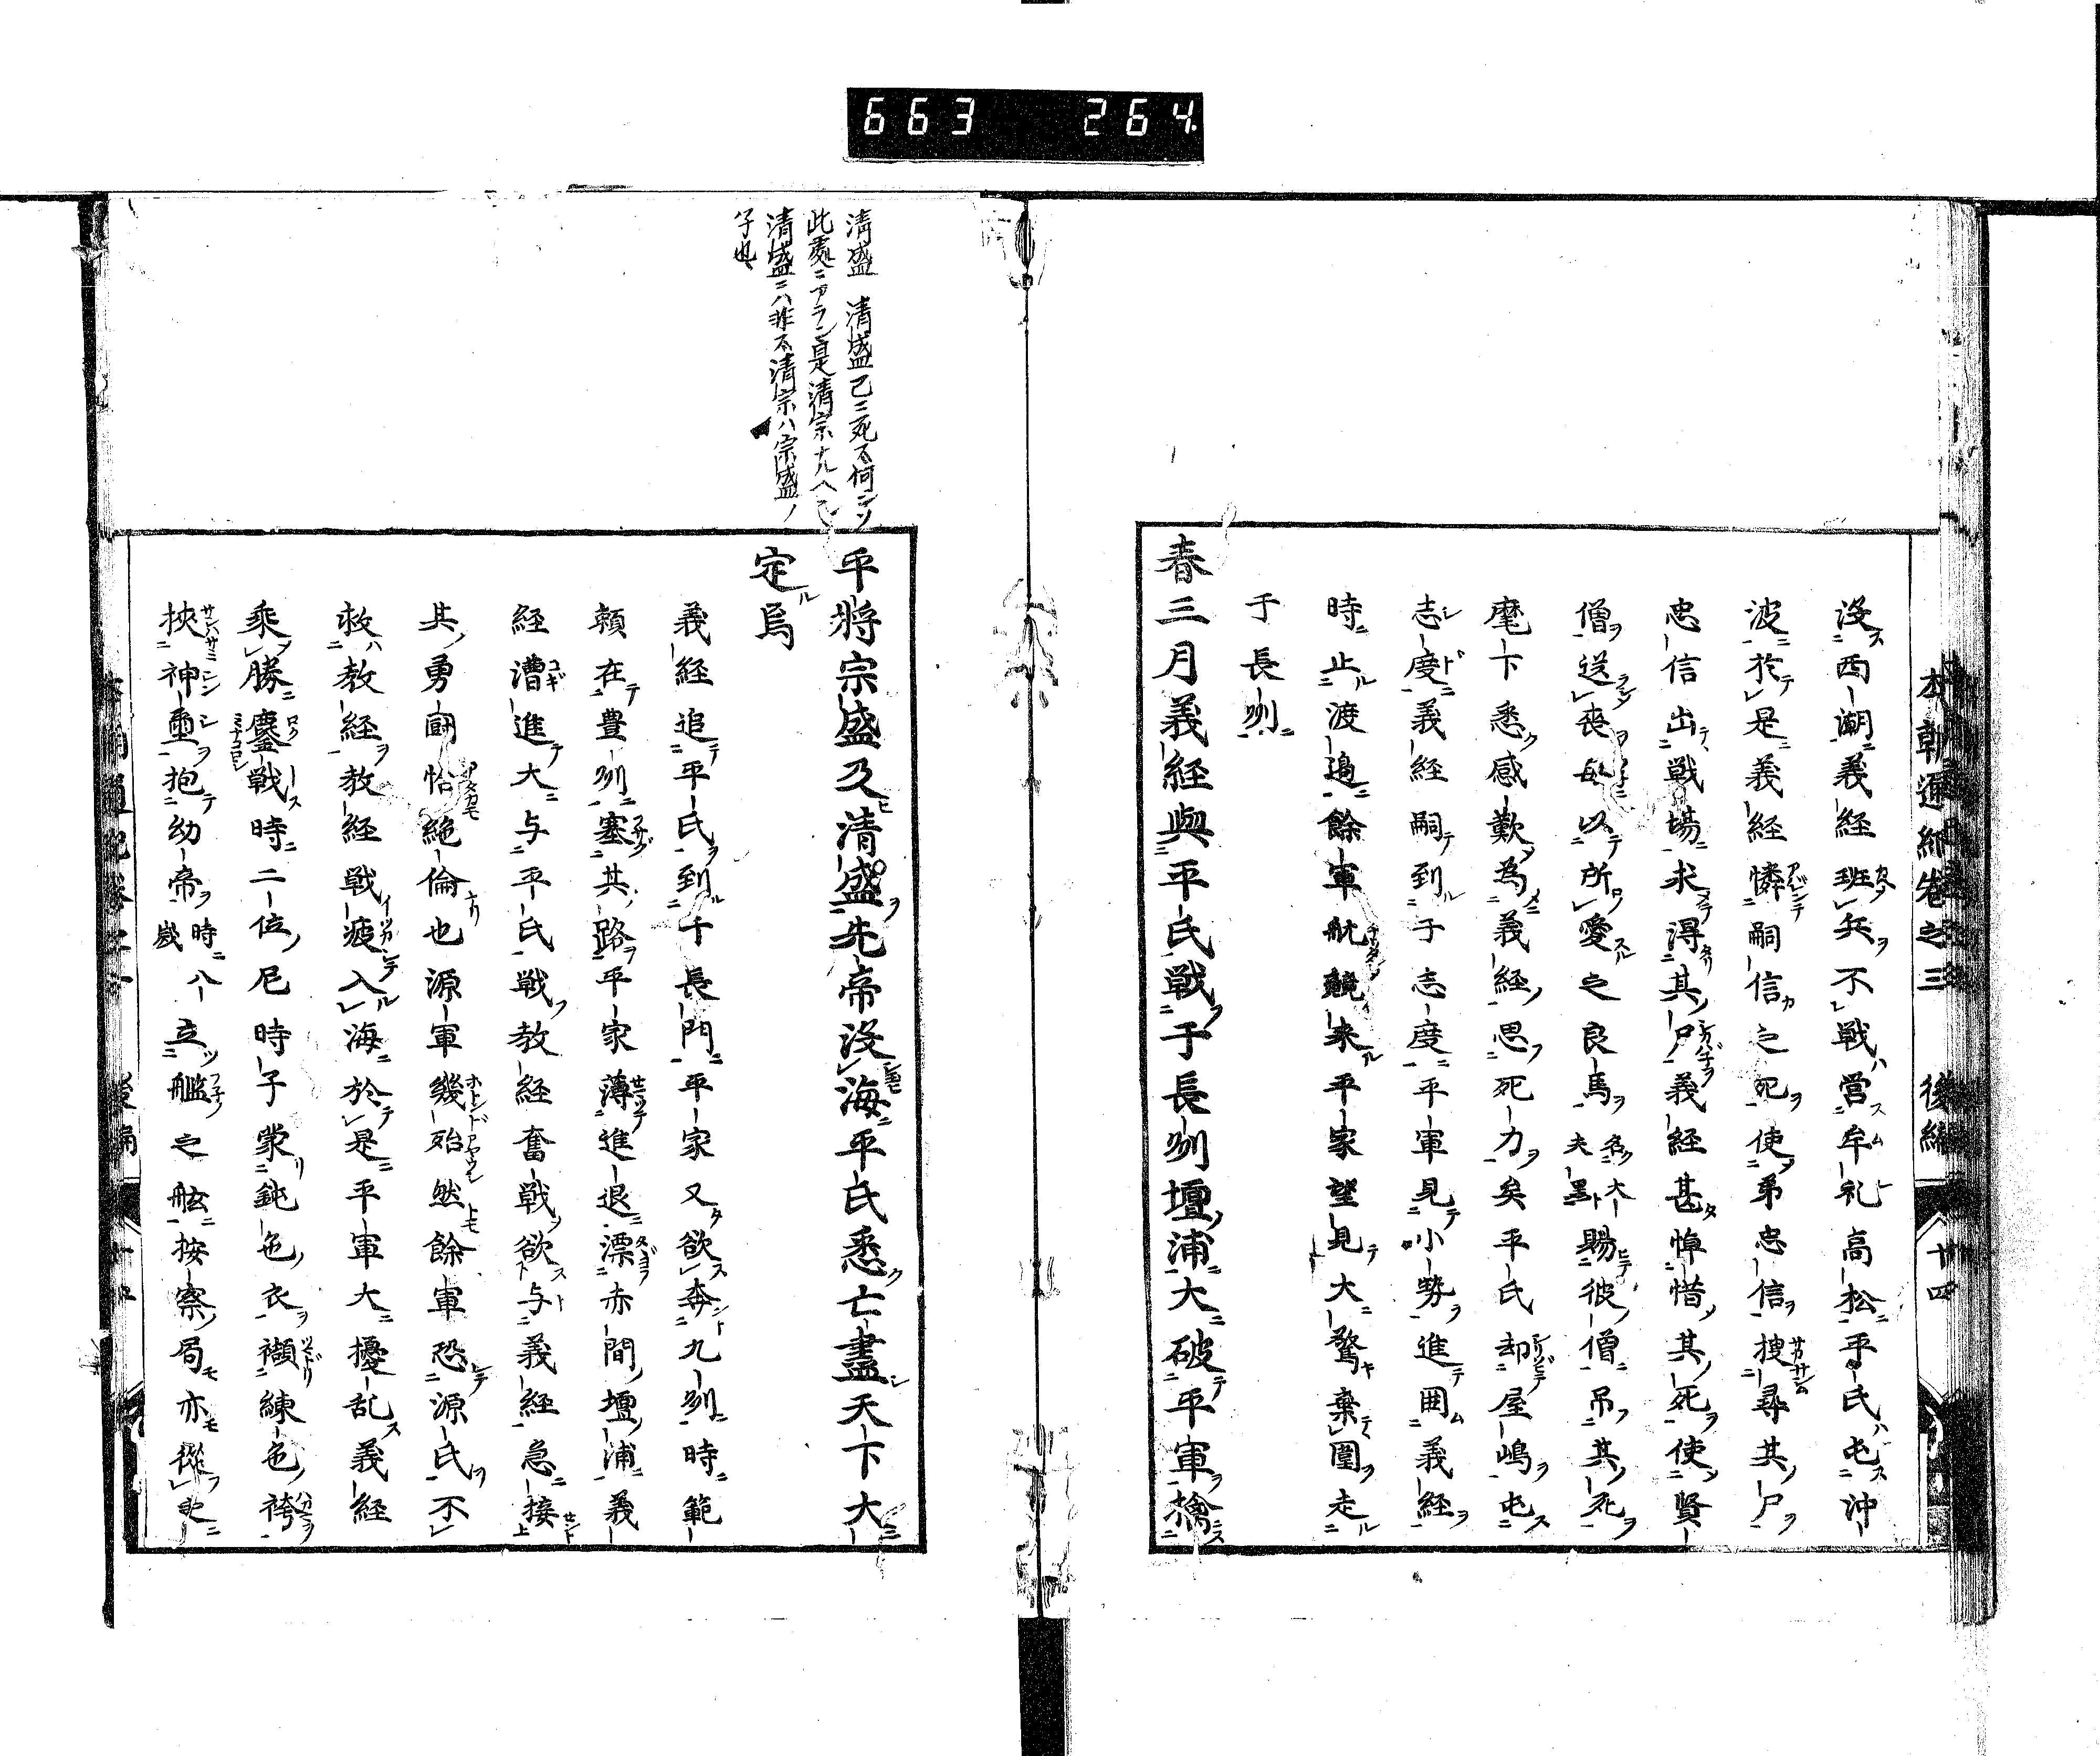 663 264
本朝通紀卷之三 後編 十四
没西潮義経班兵不戦営牟礼高松平氏屯沖
波於是義経憐嗣信之死使弟忠信捜尋其尸
忠信出戦場求得其尸義経甚悼惜其死使賢
僧送喪毎以所愛之良馬名大夫黒賜彼僧吊其死
麾下悉感歎為義経思死力矣平氏却屋嶋屯
志度義経嗣到于志度平軍見小勢進囲義経
時止渡邉餘軍航競来平家望見大驚棄圍走
于長州
春三月義経與平氏戦于長州壇浦大破平軍擒
清盛 清盛已ニ死ス何ンソ
此處ニアラン是清宗ナルヘシ
清盛ニハ非ス清宗ハ宗盛ノ
子也
平將宗盛及清盛先帝没海平氏悉亡盡天下大
定焉
義経追平氏到于長門平家又欲奔九州時範
頼在豊州塞其路平家薄進退漂赤間壇浦義
経漕進大与平氏戦教経奮戦欲与義経急接
其勇闘恰絶倫也源軍幾殆然餘軍恐源氏不
救教経教経戦疲入海於是平軍大擾乱義経
乘勝鏖戦時二位尼時子蒙鈍色衣襭練色袴
挾神璽抱幼帝時八歳立艦之舷按察局亦從之